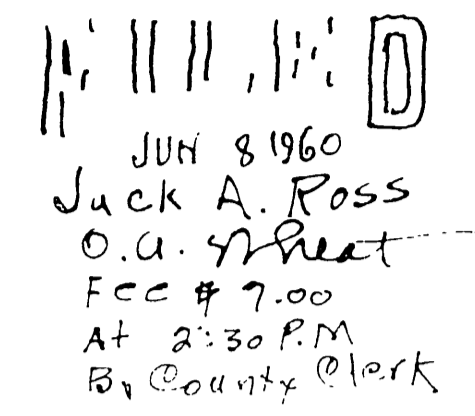 JUN 8 1960
Jack A. Ross
O.A. Wheat
Fee $ 7.00
At 2:30 P.M
By County Clerk